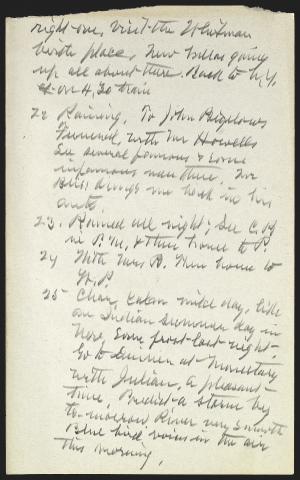 right one, visit the Whitman
birth place, New villas going
up all about there. Back to N.Y.
on 4.30 train
22 Raining. To John Bigelows
Funeral, with Mr Howells
See several famous & some
infamous men there. Mr
drives me back in his
auto.
23. Rained all night; See C.B.
in P.M. & then home to P.
24 With Mrs B. then home to
W.P.
25 Clear, calm mild day, like
an Indian summer day in
Nov. Some frost last night.
Go to dinner at Monastary
with Julian, a pleasant
time. Predict a storm by
to-morrow. River very smooth
Blue bird voices in the air
this morning.